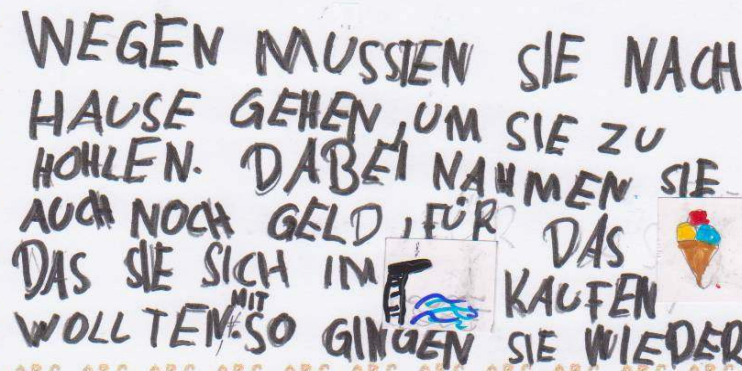 WEGEN MUSSTEN SIE NACH
HAUSE GEHEN, UM SIE ZU
HOHLEN. DABEI NAHMEN SIE
AUCH NOCH GELD, FÜR DAS
DAS SIE SICH IM KAUFEN
WOLLTEN. MIT SO GINGEN SIE WIEDER